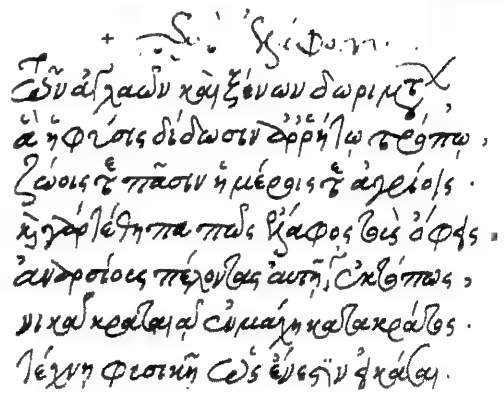 τῶν ἀγλαῶν καὶ ξένων δωρημάτων
ἃ ἡ φύσις δίδωσιν ἀρρήτῳ τρόπῳ,
ζώοις τὲ πᾶσιν ἡμέροις τὲ ἀγρίοις.
καὶ γὰρ τέθηπα πῶς ἔλαφος τοὺς ὄφεις.
πέλοντας αὐτῆς ἐκτόπως,
νικᾶ κραταιᾶ ἐν μάχη κατακράτος.
τέχνη φυσικῆ ὡς ἔνεστιν εἰκάσαι.